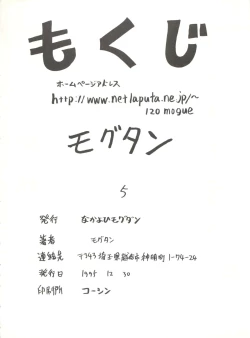 もくじ
ホームページアドレス
http://www.netlaputa.ne.jp/~
120mogue
モグタン
5
発行 なかよひモグタン
著者 モグタン
連絡先 〒343埼玉県越谷市神明町1-74-24
発行日 1995 12 30
印刷所 コーシン